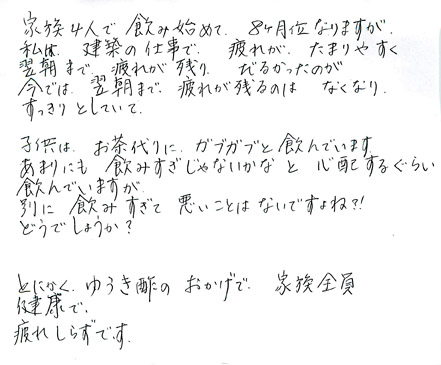 家族4人で 飲み始めて、8ヶ月位なりますが、
私は、建築の仕事で、疲れが、たまりやすく
翌朝まで、疲れが残り、だるかったのが
今では、翌朝まで、疲れが残るのは なくなり、
すっきりとしていて、
子供は、お茶代りに、ガブガブと飲んでいます
あまりにも 飲みすぎじゃないかな と 心配するぐらい
飲んでいますが、
別に 飲みすぎて 悪いことはないですよね?!
どうでしょうか?
とにかく、ゆうき酢の おかげで、家族全員
健康で、
疲れしらずです。